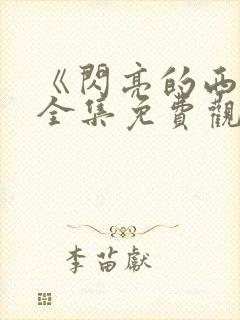 《閃亮的西
全集免費觀
李苗獻